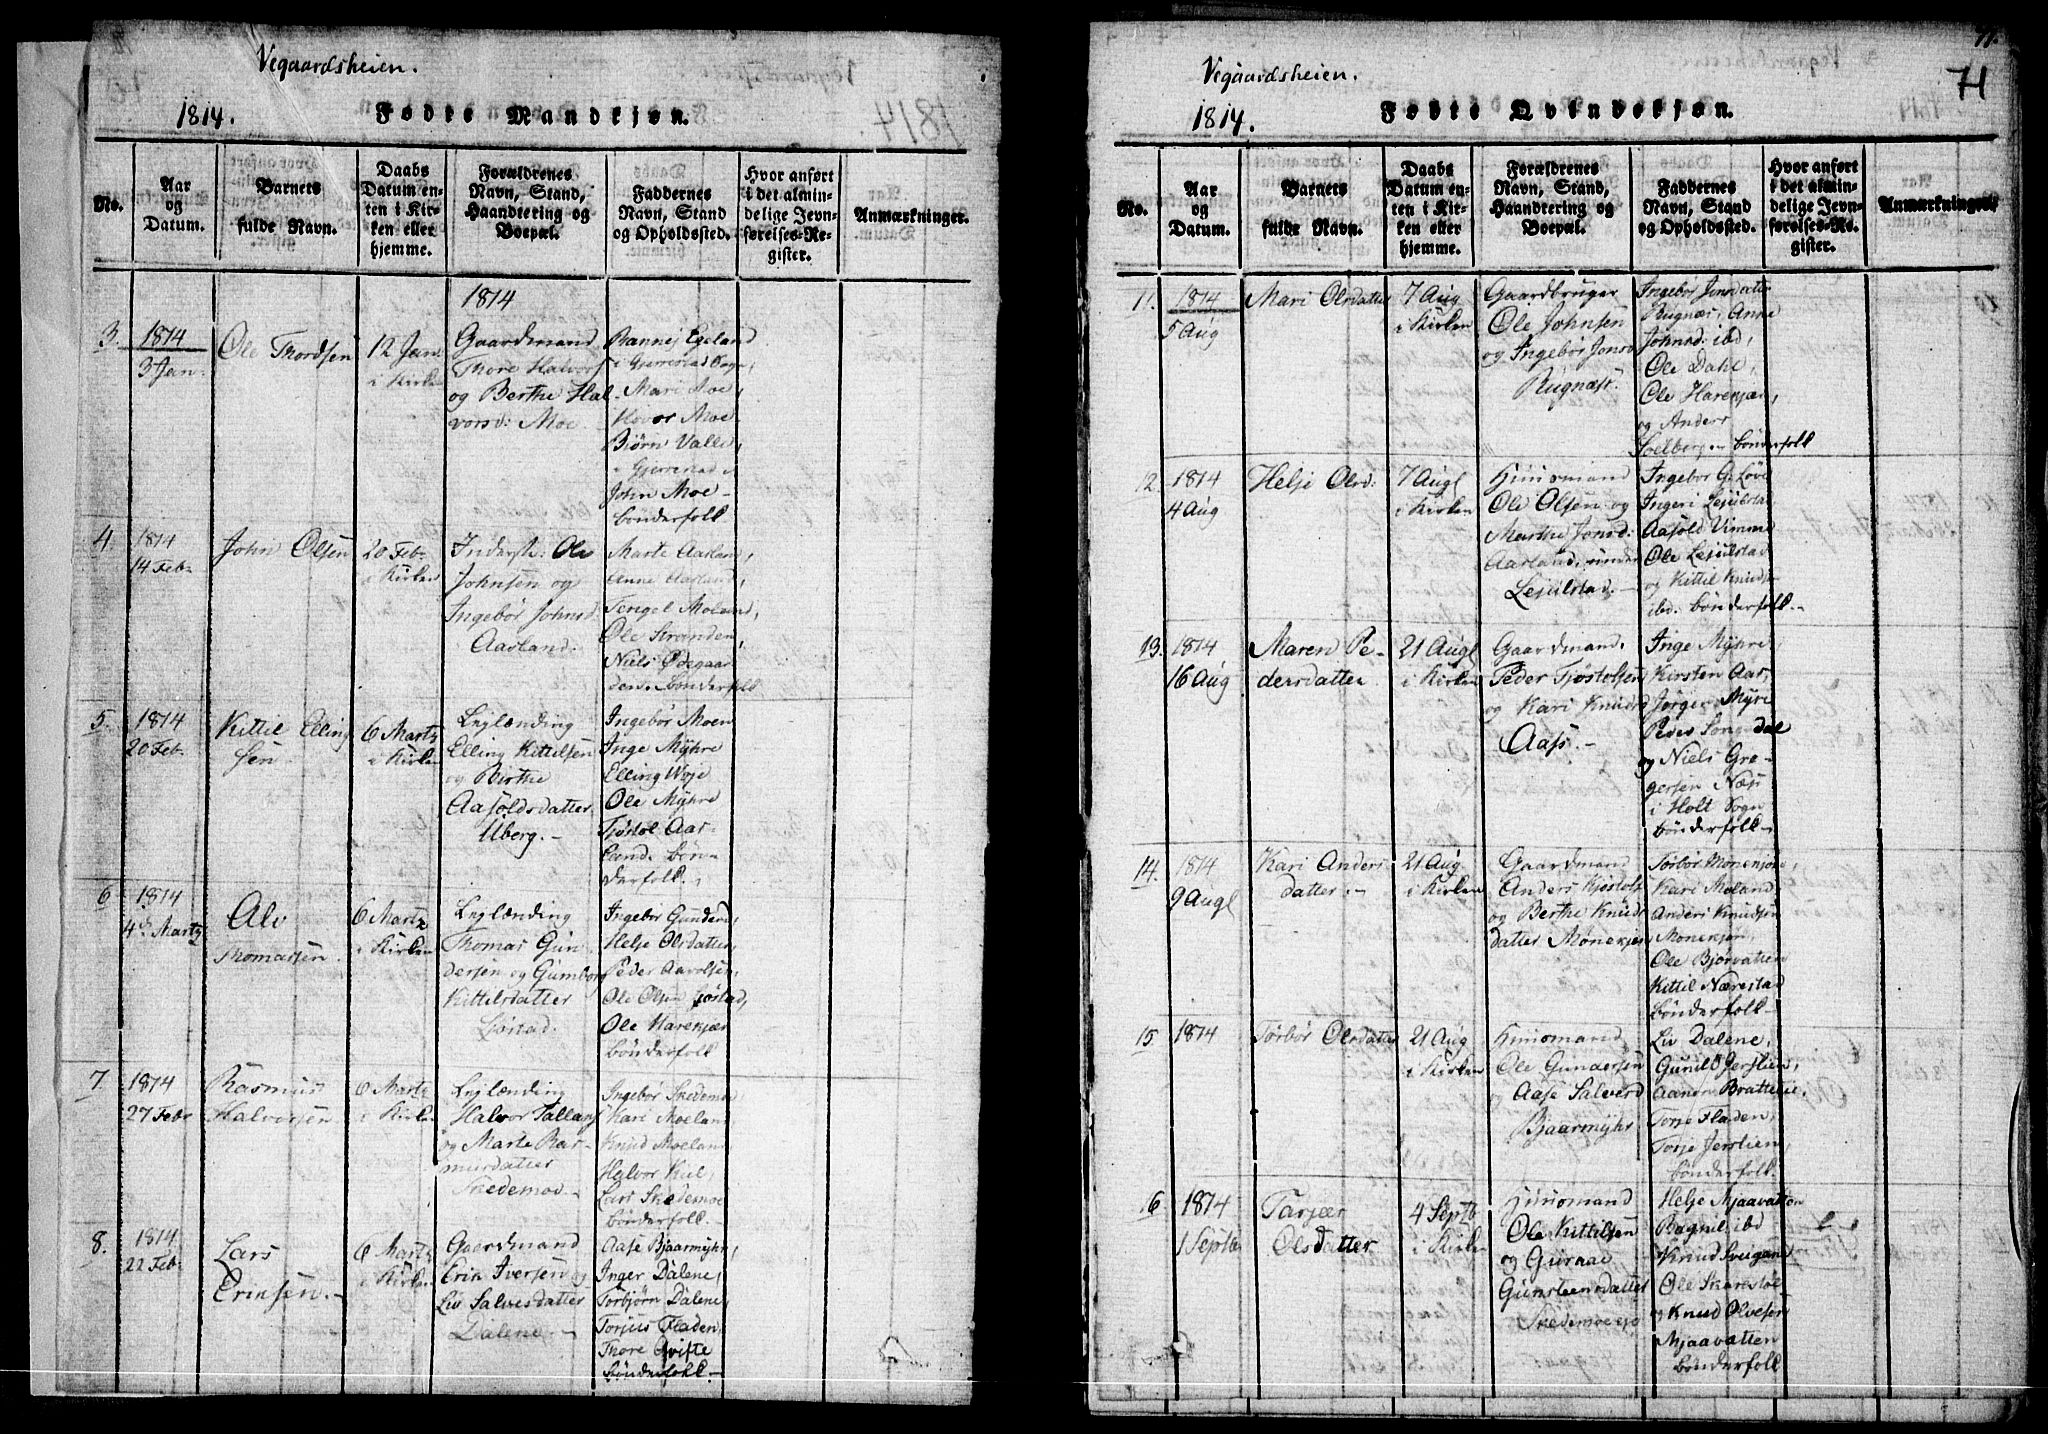 Vegaardsheien.
1814.
Fødte Mandkjøn.
No.
Aar
og
Datum.
Barnets
fulde Navn.
Daabs
Datum en-
ten i Kir-
ken eller
hjemme.
Forældrenes
Navn, Stand,
Haandtering og
Boepæl.
Faddernes
Navn, Stand
og Opholdssted.
Hvor anført
i det almin-
delige Jevn-
førelses-Re-
gister.
Anmærkninger.
3.
1814
3 Jan.
Ole Thordsen
12 Jan.
i Kirken
1814
Gaardmand
Thore Halvors
og Berthe Hal-
vorsd: Moe
Egeland
i Gjerrestad Sogn
Mari Moe,
Hovor Moe
Biørn Valle,
i Gjerrestad
John Moe -
bønderfolk
4.
1814
14 Feb.
John Olsen
20 Feb.
i Kirken
Inderste: Ole
Johnsen og
Ingebør Johnsd.
Aasland.
Marte Aasland,
Anne Aasland,
Tengel Moland,
Ole Stranden,
Niels Ødegaar
den. bønderfolk
5.
1814
20 Feb.
Kittil Elling
sen.
6 Martz
i Kirken
Lejlænding
Elling Kittilsen
og Birthe
Aasoldsdatter
Uberg.-
Ingebør Moen
Inge Myhre
Elling Woje
Ole Myhre
Tjøstol Aas-
land. bøn-
derfolk.
6
1814
4de Martz
Alv
Thomassen
6 Martz
i Kirken
Lejlænding
Thomas Gun
dersen og Gumbor
Kittilsdatter
Ljøstad.
Ingebør Gunders,
Helje Olsdatter,
Peder Aavolsen,
Ole Olsen Ljøstad,
Ole Harekjær
bønderfolk
7
1814
27 Febr
Rasmus
Halvorsen
6 Martz
i Kirken
Lejlænding
Halvor Tallags
og Marte Ras-
musdatter
Skedemoe -
Ingebør Skedemoe
Kari Moeland
Knud Moeland
Halvor Kiil,
Lars Skedemoe
bønderfolk.-
8.
1814
21 Feb.
Lars
Ericsen.-
6 Martz
i Kirken
Gaardmand
Eric Iversen og
Liv Salvesdatter
Dalene.-
Aase Bjaarmyhr,
Inger Dalene,
Torbjørn Dalene,
Torjus Fladen,
Thore Qvifte
bønderfolk.-
Vegaardsheien.
71
1814.
Fødte Qvindekjøn.
No.
Aar
og
Datum.
Barnets
fulde Navn.
Daabs
Datum en-
ten i Kir-
ken eller
hjemme.
Forældrenes
Navn, Stand,
Haandtering og
Boepæl.
Faddernes
Navn, Stand
og Opholdssted.
Hvor anført
i det almin-
delige Jevn-
førelses-Re-
gister.
Anmærkninger.
11.
1814
5 Aug
Mari Olsdatter
7 Aug
i Kirken
Gaardbruger
Ole Johnsen
og Ingebør Jonsd
Rugnæss.
Ingebør Jensdatter
Rugnæs, Anne
Johnsd: ibd,
Ole Dahl,
Ole Harekjær,
og Anders
Solberg - bønderfolk
12.
1814
4 Aug
Helje Olsd:
7 Augl
i Kirken
Huusmand
Ole Olsen og
Marthe Jonsd:
Aasland, under
Lejulstad.-
Ingebør G. Løve
Ingeri Lejulstad
Aasold Vimme
Ole Lejulstad
og Kittil Knuds
ibd: bønderfolk.-
13.
1814
16 Aug
Maren Pe-
dersdatter
21 Augl
i Kirken
Gaardmand.
Peder Tjøstolsen
og Kari Knudsd
Aass.-
Inge Myhre
Kirsten Aas,
Jørgen Myre
Peder Songedal
og Niels Gre-
gersen Næss
i Holt Sogn
bønderfolk-
14.
1814
9 Augl
Kari Anders
datter.-
21 Aug
i Kirken
Gaardmand
Anders Kjøstols
og Berthe Knuds
datter Mønekjøn
Torbør Monekjøn,
Kari Moland
Anders Knudsen
Monekjøn,
Ole Bjørvatten
Kittil Nærestad
bønderfolk-
15
1814
Torbør Olsdatter
21 Aug
i Kirken
Huusmand
Ole Gundersen
og Aase Salvesd
Bjaarmyhr
Liv Dalene,
Gunild Jerslien,
Aanon Bratteline,
Torje Fladen,
Torje Jerslien,
bønderfolk
16
1814
1 Septb
Tarjær
Olsdatter
4 Septb
i Kirken
Huusmand
Ole Kittilsen
og Guraae
Gunsteensdatter
Skedemoe
Helje Mjaavatten
Ragnil ibd
Knud Sveigand
Ole Skarestøl
og Knud Olvesøn
Mjaavatten
bønderfolk